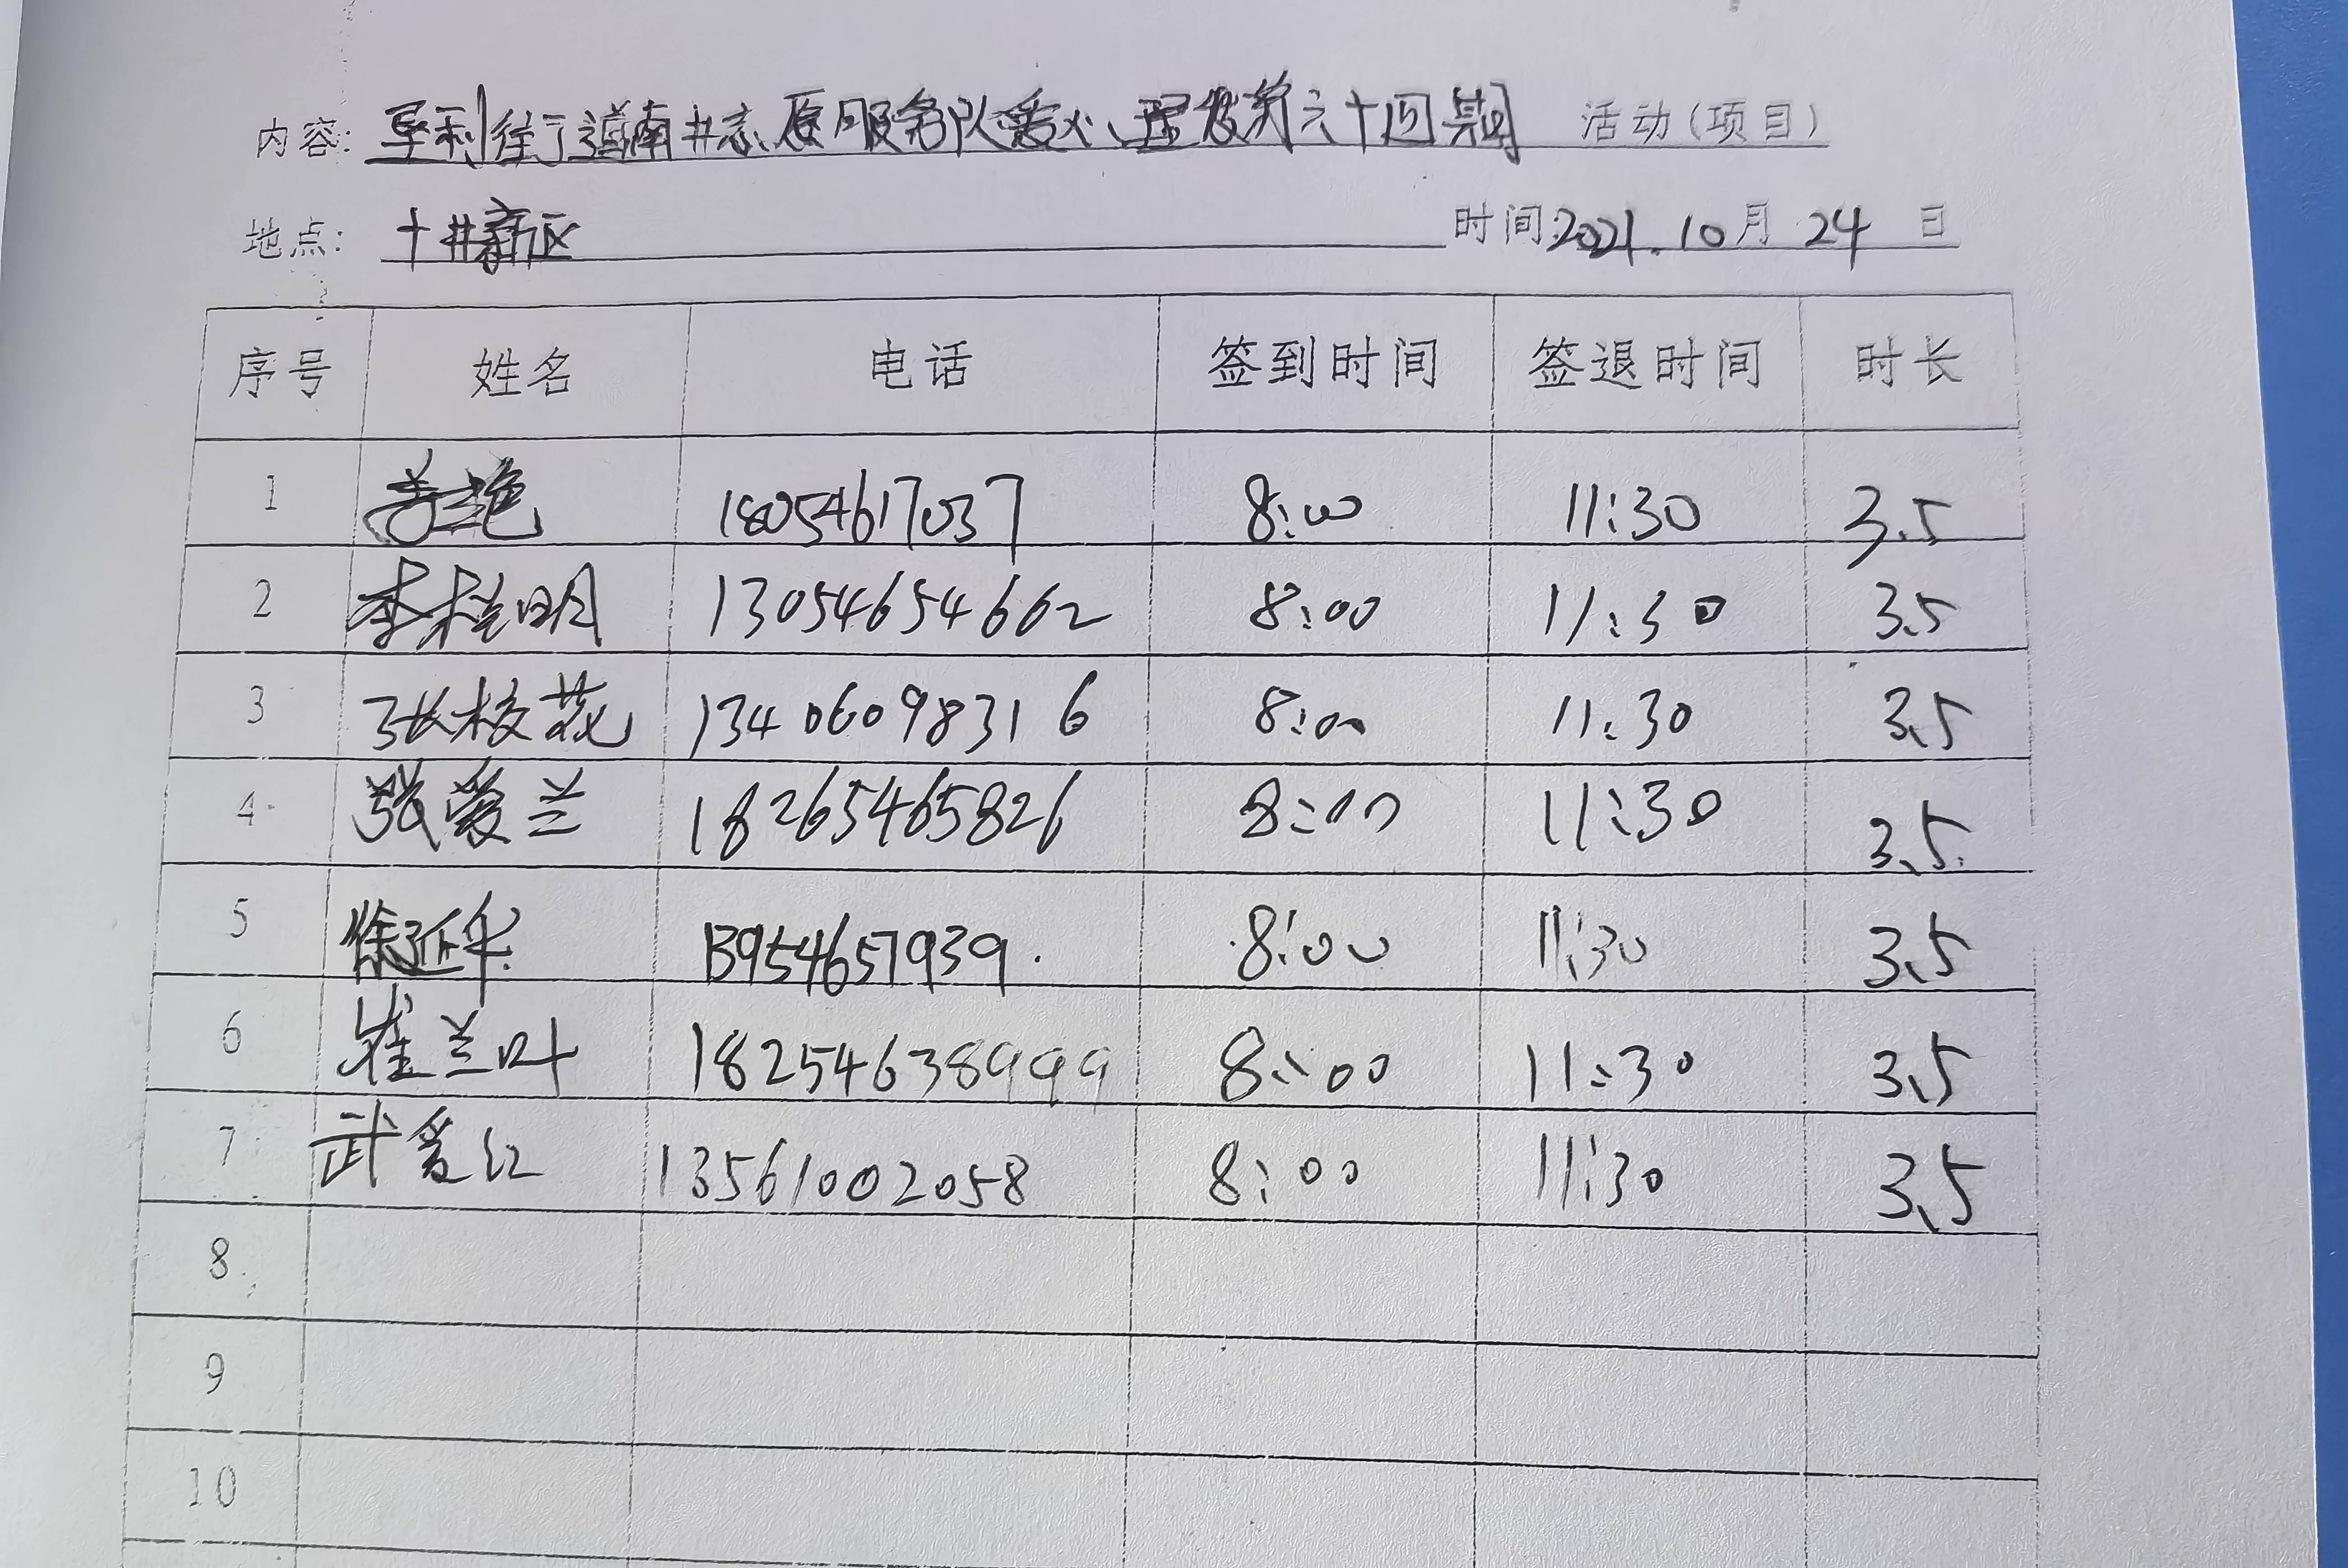 内容: 垦利街道南井志愿服务队爱心理发第六十四期 活动(项目)
地点: 十井新区 时间: 2021.10月 24 日
序号 姓名 电话 签到时间 签退时间 时长
1 18054617037 8:00 11:30 3.5
2 李桂明 13054654662 8:00 11:30 3.5
3 张校花 13406098316 8:00 11:30 3.5
4 张爱兰 18265465826 8:00 11:30 3.5
5 徐延华 13954657939 8:00 11:30 3.5
6 崔兰叶 18254638999 8:00 11:30 3.5
7 武爱红 13561002058 8:00 11:30 3.5
8
9
10